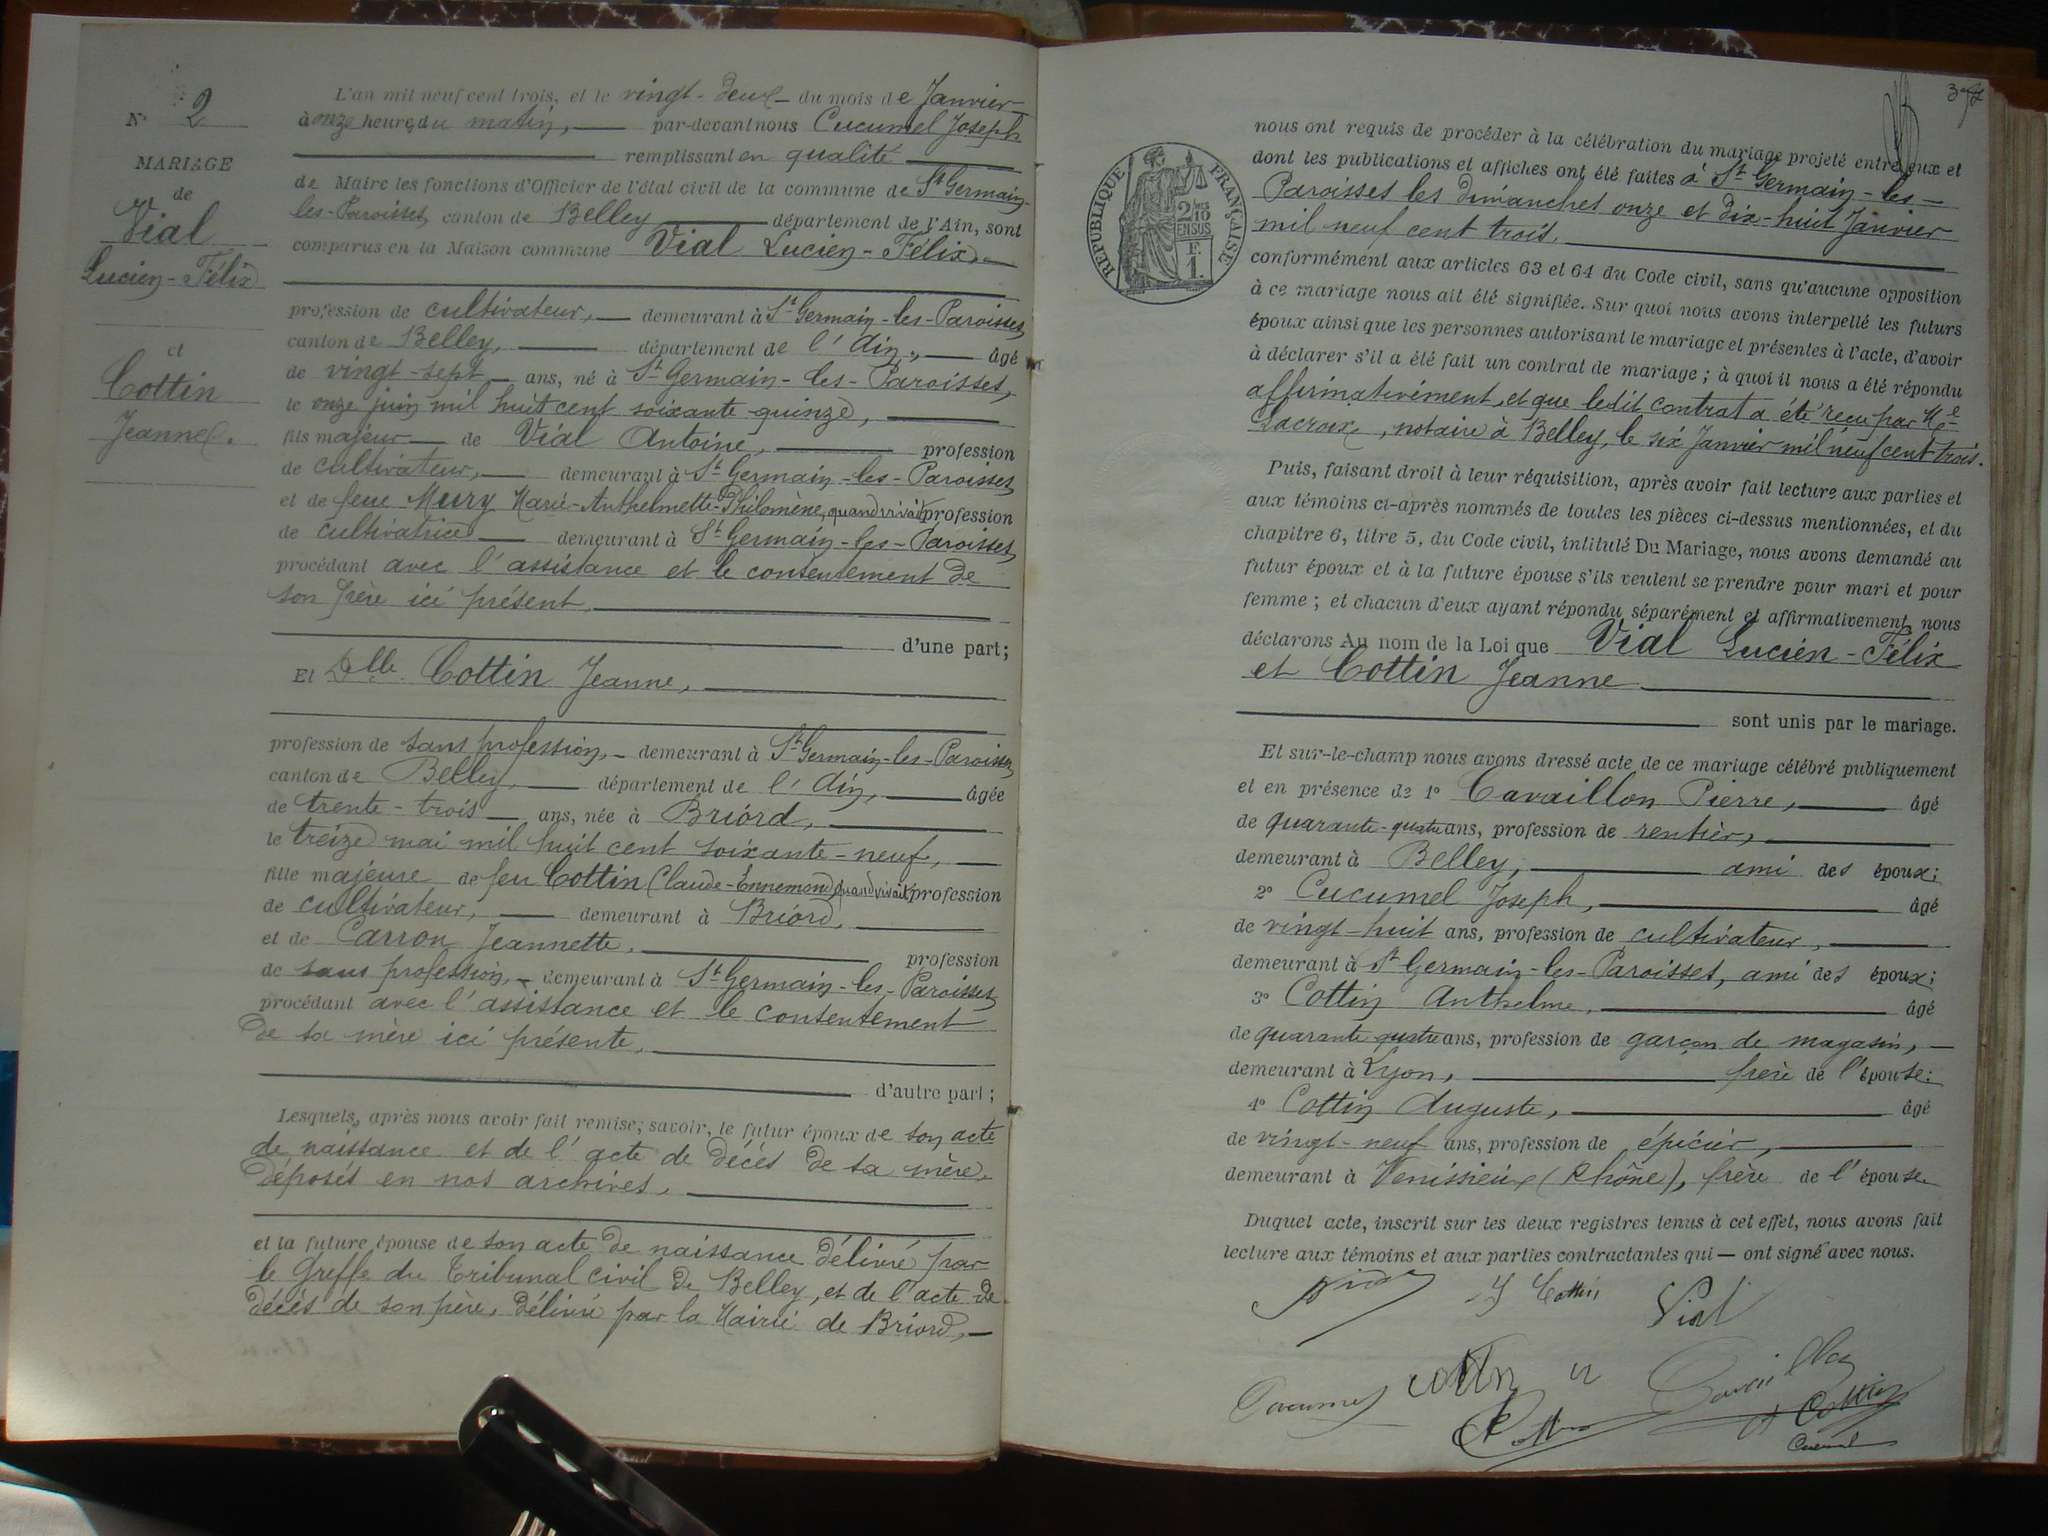 N° 2
MARIAGE
de
Vial
Lucien-Félix
et
Cottin
Jeanne.
L'an mil neuf cent trois, et le vingt-deux du mois de Janvier
à onze heures du matin, par-devant nous Cucumel Joseph
remplissant en qualité
de Maire les fonctions d'Officier de l'état civil de la commune de St Germain-
les-Paroisses, canton de Belley département de l'Ain, sont
comparus en la Maison commune Vial Lucien-Félix,
profession de cultivateur, demeurant à St Germain-les-Paroisses,
canton de Belley, département de l'Ain, âgé
de vingt-sept ans, né à St Germain-les-Paroisses,
le onze juin mil huit cent soixante quinze,
fils majeur de Vial Antoine, profession
de cultivateur, demeurant à St Germain-les-Paroisses
et de feue Meury Marie-Anthelmette-Philomène, quand vivait profession
de cultivatrice demeurant à St Germain-les-Paroisses,
procédant avec l'assistance et le consentement de
son père ici présent.
d'une part;
Et Delle Cottin Jeanne,
profession de sans profession, demeurant à St Germain-les-Paroisses
canton de Belley, département de l'Ain, âgée
de trente-trois ans, née à Briord,
le treize mai mil huit cent soixante-neuf,
fille majeure de feu Cottin Claude-Ennemond, quand vivait profession
de cultivateur, demeurant à Briord,
et de Carron Jeannette, profession
de sans profession, demeurant à St Germain-les-Paroisses
procédant avec l'assistance et le consentement
de sa mère ici présente,
d'autre part;
Lesquels, après nous avoir fait remise; savoir, le futur époux de son acte
de naissance et de l'acte de décés de sa mère,
déposés en nos archives,
et la future épouse de son acte de naissance délivré par
le Greffe du Tribunal civil de Belley, et de l'acte de
décés de son père, délivré par la Mairie de Briord,
RÉPUBLIQUE FRANÇAISE
2/10
EN SUS
F.
1.
nous ont requis de procéder à la célébration du mariage projeté entre eux et
dont les publications et affiches ont été faites à St Germain-les-
Paroisses les dimanches onze et dix-huit Janvier
mil neuf cent trois.
conformément aux articles 63 et 64 du Code civil, sans qu'aucune opposition
à ce mariage nous ait été signifiée. Sur quoi nous avons interpellé les futurs
époux ainsi que les personnes autorisant le mariage et présentes à l'acte, d'avoir
à déclarer s'il a été fait un contrat de mariage; à quoi il nous a été répondu
affirmativement, et que ledit contrat a été reçu par Me
Lacroix, notaire à Belley, le six Janvier mil neuf cent trois.
Puis, faisant droit à leur réquisition, après avoir fait lecture aux parties et
aux témoins ci-après nommés de toutes les pièces ci-dessus mentionnées, et du
chapitre 6, titre 5, du Code civil, intitulé Du Mariage, nous avons demandé au
futur époux et à la future épouse s'ils veulent se prendre pour mari et pour
femme; et chacun d'eux ayant répondu séparément et affirmativement, nous
déclarons Au nom de la Loi que Vial Lucien-Félix
et Cottin Jeanne
sont unis par le mariage.
Et sur-le-champ nous avons dressé acte de ce mariage célébré publiquement
et en présence de 1° Cavaillon Pierre, âgé
de quarante-quatre ans, profession de rentier,
demeurant à Belley, ami des époux;
2° Cucumel Joseph, âgé
de vingt-huit ans, profession de cultivateur,
demeurant à St Germain-les-Paroisses, ami des époux;
3° Cottin Anthelme, âgé
de quarante quatre ans, profession de garçon de magasin,
demeurant à Lyon, frère de l'épouse;
4° Cottin Auguste, âgé
de vingt-neuf ans, profession de épicier,
demeurant à Venissieux (Rhône), frère de l'épouse.
Duquel acte, inscrit sur les deux registres tenus à cet effet, nous avons fait
lecture aux témoins et aux parties contractantes qui ont signé avec nous.
J Cottin
Vial
Cucumel
cottin
Cavaillon
A Cottin
Cucumel